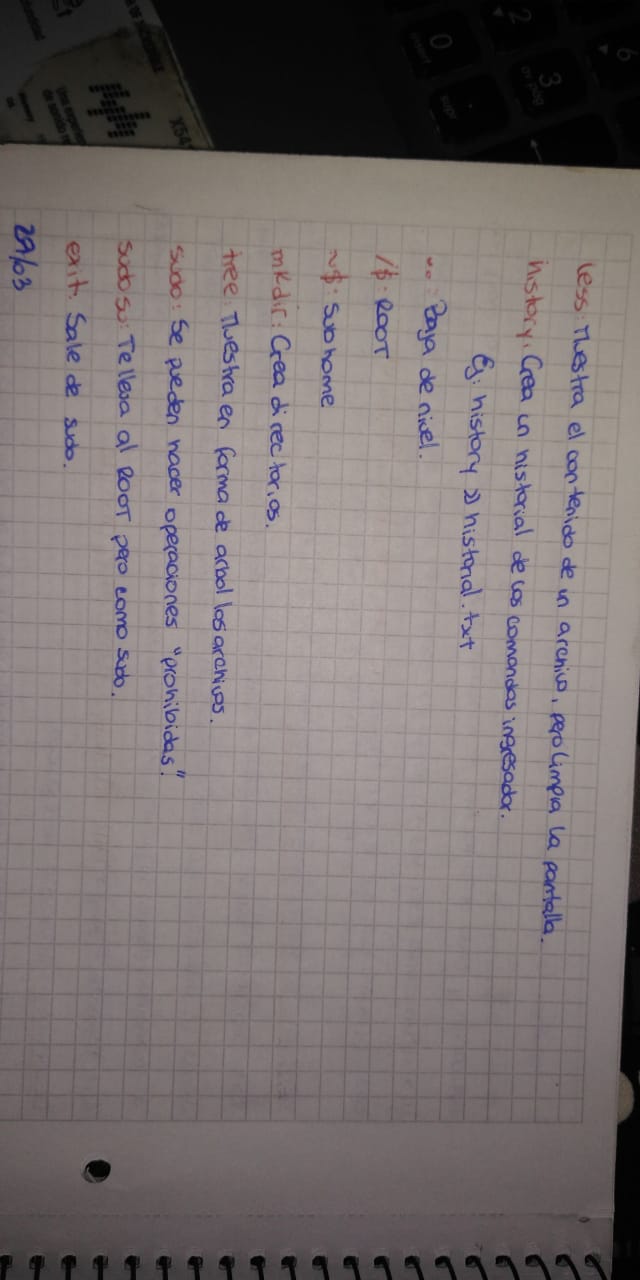 less: Muestra el contenido de un archivo, pero limpia la pantalla.
history. Crea un historial de los comandos ingresador.
Ej. history >> historial.txt
..: Baja de nivel.
/$: ROOT
~$: Subhome
mkdir: Crea directorios.
tree: Muestra en forma de arbol los archivos.
sudo: Se pueden hacer operaciones "prohibidas".
sudo su: Te lleva al ROOT pero como sudo.
exit. Sale de sudo.
29/03
6
3
av pág
2
0
insert
supr
X541
Una experien
de sonido re